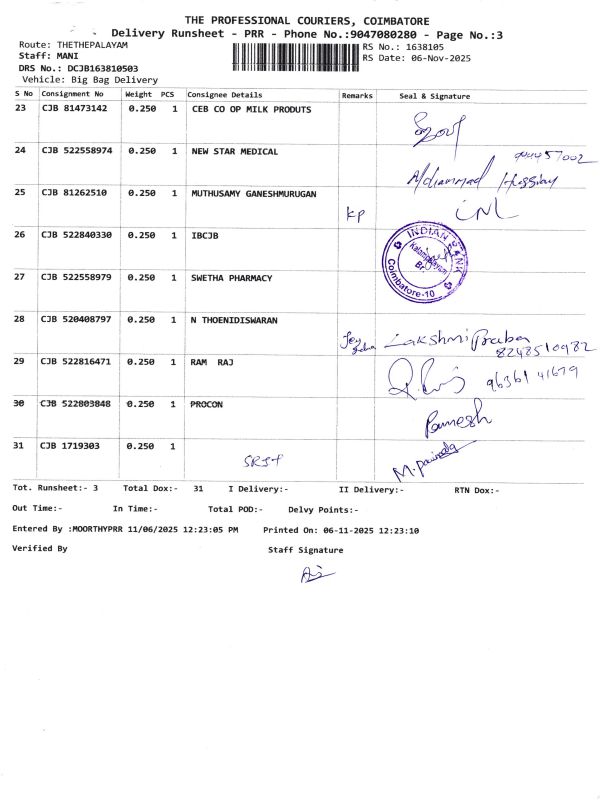 THE PROFESSIONAL COURIERS, COIMBATORE
Delivery Runsheet - PRR - Phone No.:9047080280 - Page No.:3
Route: THETHEPALAYAM
RS No.: 1638105
Staff: MANI
RS Date: 06-Nov-2025
DRS No.: DCJB163810503
Vehicle: Big Bag Delivery
S No Consignment No Weight PCS Consignee Details Remarks Seal & Signature
23 CJB 81473142 0.250 1 CEB CO OP MILK PRODUTS
24 CJB 522558974 0.250 1 NEW STAR MEDICAL
Mohammad
25 CJB 81262510 0.250 1 MUTHUSAMY GANESHMURUGAN
kp
26 CJB 522840330 0.250 1 IBCJB
INDIAN BANK
Kalampalayam
Br.
Coimbatore-10
27 CJB 522558979 0.250 1 SWETHA PHARMACY
28 CJB 520408797 0.250 1 N THOENIDISWARAN
Lakshmi Praba
8248510982
29 CJB 522816471 0.250 1 RAM RAJ
9636141679
30 CJB 522803848 0.250 1 PROCON
Ramesh
31 CJB 1719303 0.250 1
Tot. Runsheet:- 3 Total Dox:- 31 I Delivery:- II Delivery:- RTN Dox:-
Out Time:- In Time:- Total POD:- Delvy Points:-
Entered By :MOORTHYPRR 11/06/2025 12:23:05 PM Printed On: 06-11-2025 12:23:10
Verified By Staff Signature